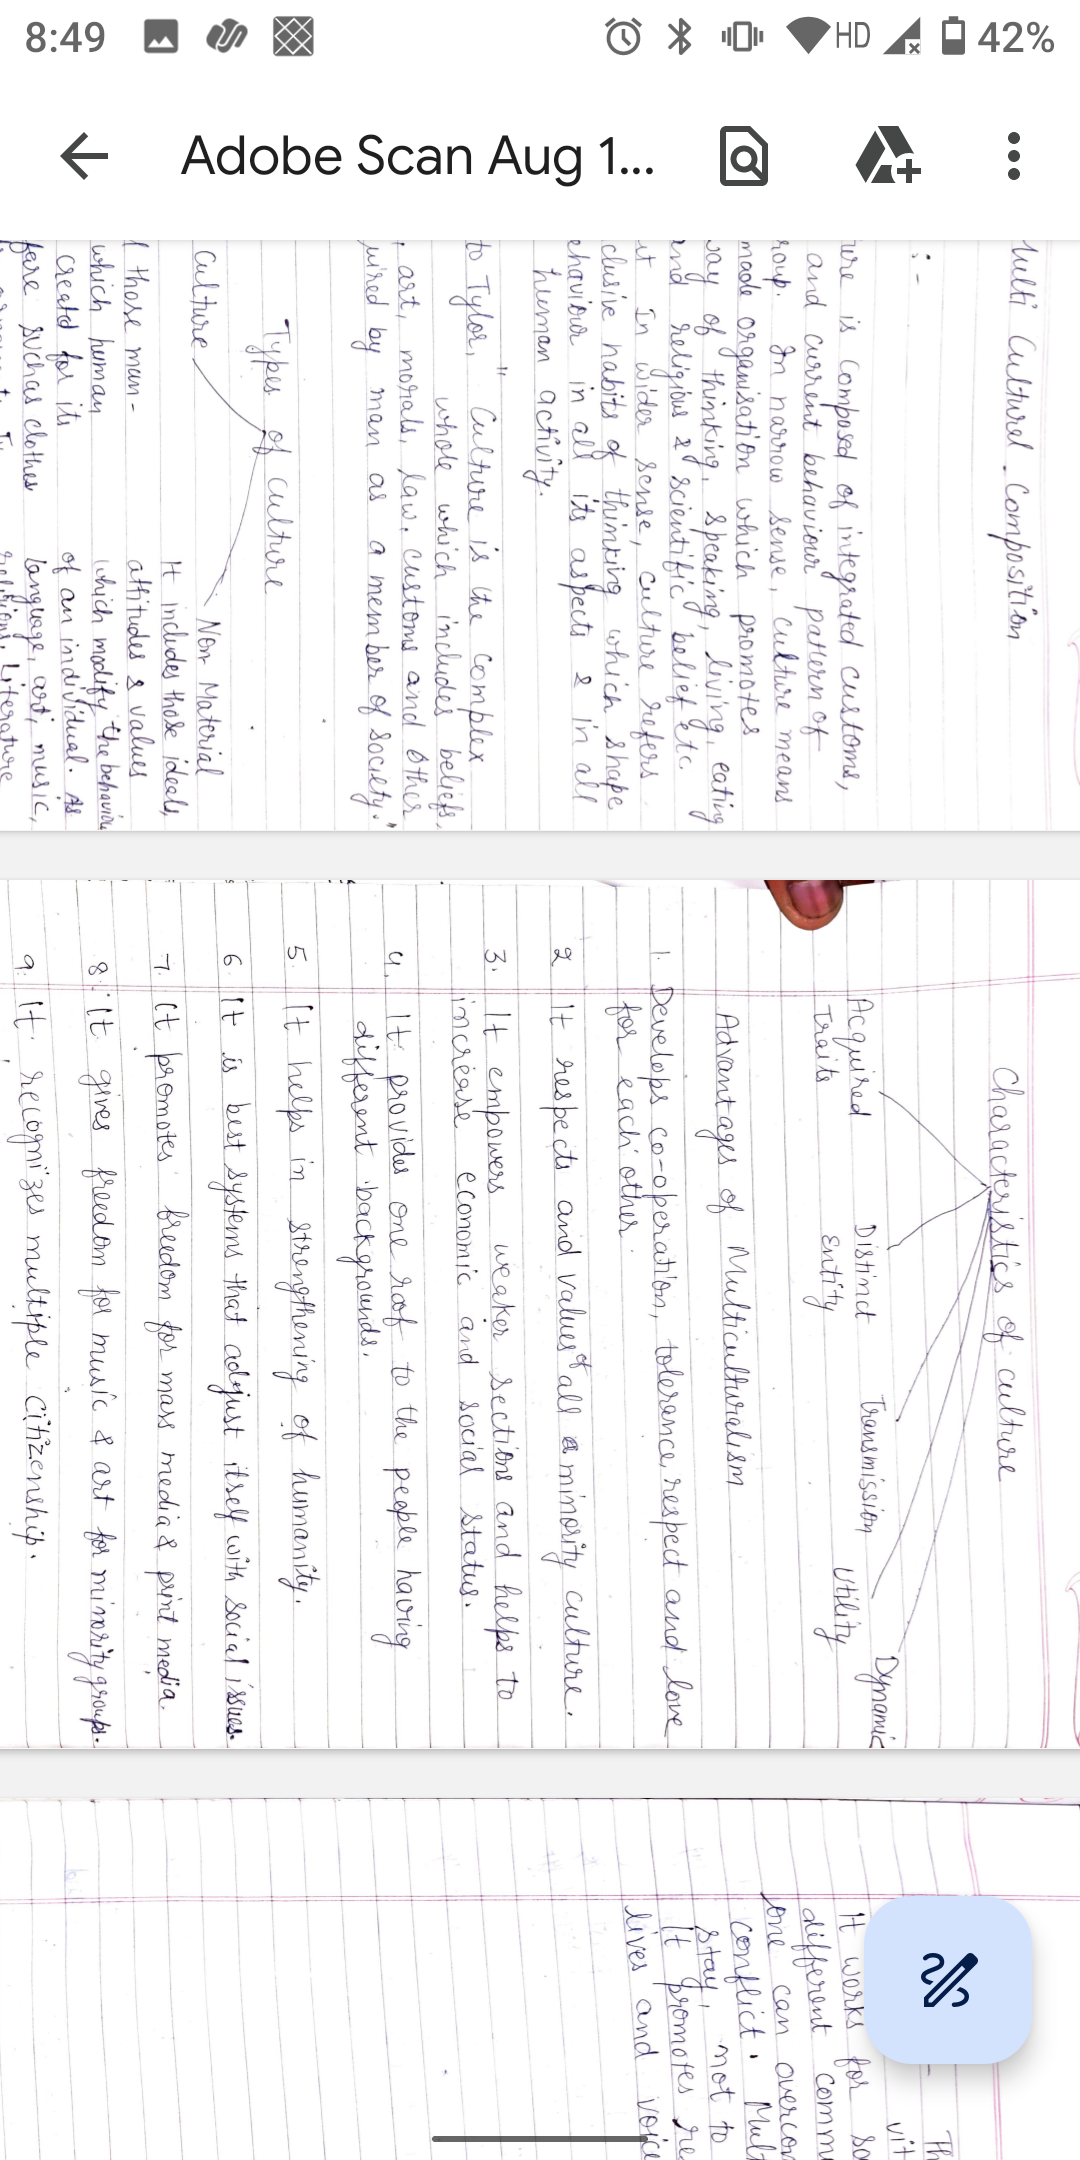 8:49
HD
42%
Adobe Scan Aug 1...
Multi Cultural Composition
:-
ure is composed of integrated customs,
and current behaviour pattern of
roup. In narrow sense, culture means
made organisation which promotes
way of thinking, speaking, living, eating
and religious & scientific belief etc.
ut In wider sense, culture refers
clusive habits of thinking which shape
ehaviour in all its aspects & in all
human activity.
to Tylor, " Culture is the complex
whole which includes beliefs,
art, morals, law, customs and other
uired by man as a member of society."
Types of culture
Culture
Non Material
those man-
which human
created for its
fare such as clothes
It includes those ideals,
attitudes & values
which modify the behaviou
of an individual. As
language, art, music,
religions, Literature
Characteristics of culture
Acquired
Traits
Distinct
Entity
Transmission
Utility
Dynamic
Advantages of Multiculturalism
1. Develops co-operation, tolerence, respect and love
for each other.
2 It respects and values of all a minority culture.
3. It empowers weaker sections and helps to
increase economic and social status.
4. It provides one roof to the people having
different backgrounds.
5. It helps in strengthening of humanity.
6. It is best systems that adjust itself with social issues.
7. It promotes freedom for mass media & print media.
8. It gives freedom for music & art for minority groups.
9. It recognizes multiple citizenship.
Th
vit
It works for so
different commu
one can overcom
conflict. Mult
stay, not to
It promotes re
lives and voice